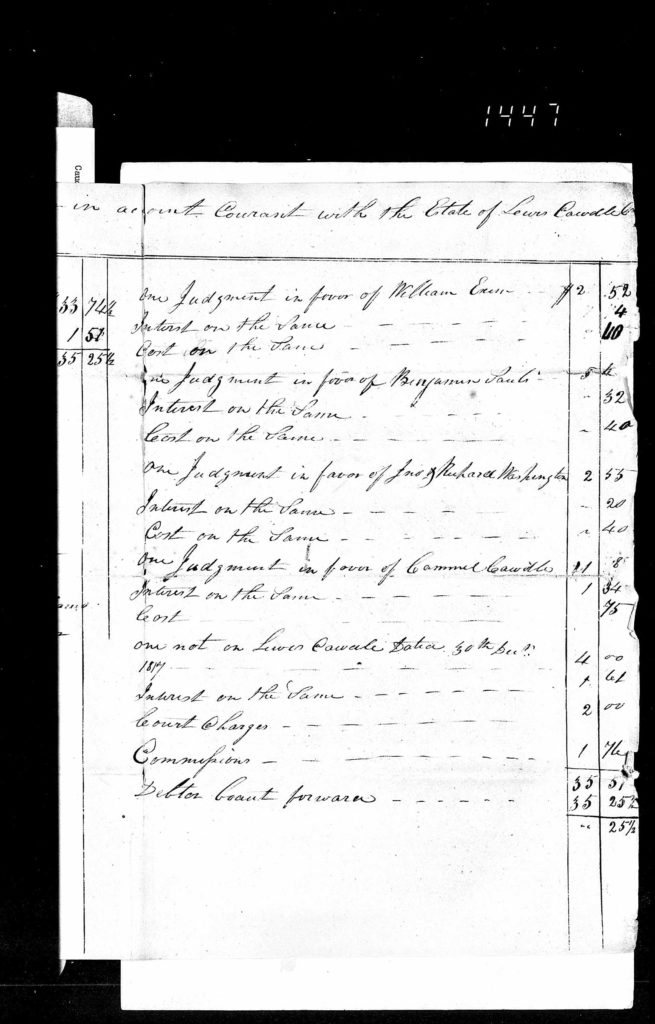 1447
in account Courant with the Estate of Lewis Cawdle
33 74½ One Judgment in favor of William $2 52
1 51 Interst on the Same 4
35 25½ Cost on the Same 40
One Judgment in favor of Benjamin 5
Interest on the Same 32
Cost on the Same 40
One Judgment in favor of Jno & Richard Washington 2 55
Interest on the Same 20
Cost on the Same 40
One Judgment in favor of Cammel Cawdle 11 8
Interest on the Same 1 34
Cost 75
One not on Lewis Cawdle Dated 30th
1817 4 00
Interest on the Same 1 61
Court Charges 2 00
Commissions 1 76
35 51
Debtor Coaut forward 35 25½
" 25½